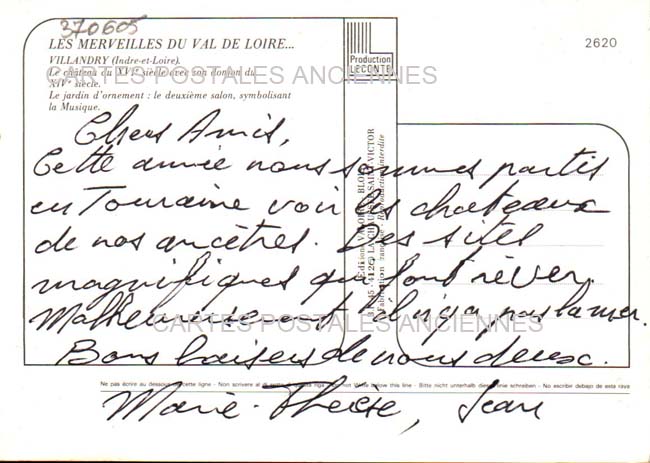 370605
LES MERVEILLES DU VAL DE LOIRE...
VILLANDRY (Indre-et-Loire).
Le château du XVIe siècle avec son donjon du
XIVe siècle.
Le jardin d'ornement : le deuxième salon, symbolisant
la Musique.
Production
LECONTE
2620
CARTES POSTALES ANCIENNES
Chers Amis,
Cette année nous sommes partis
en Touraine voir les chateaux
de nos ancêtres. Des sites
magnifiques qui font rêver.
Malheureusement il n'y a pas la mer.
Bons baisers de nous deux.
Marie-Thérèse, Jean
CARTES POSTALES ANCIENNES
Editions VALOIRE - BLOIS
LA CHAUSSÉE SAINT-VICTOR
Fabrication française - Reproduction interdite
Ne pas écrire au dessous de cette ligne - Non scrivere al di sotto di questa riga - not write below this line - Bitte nicht unterhalb dieser schreiben - No escribir debajo de esta raya